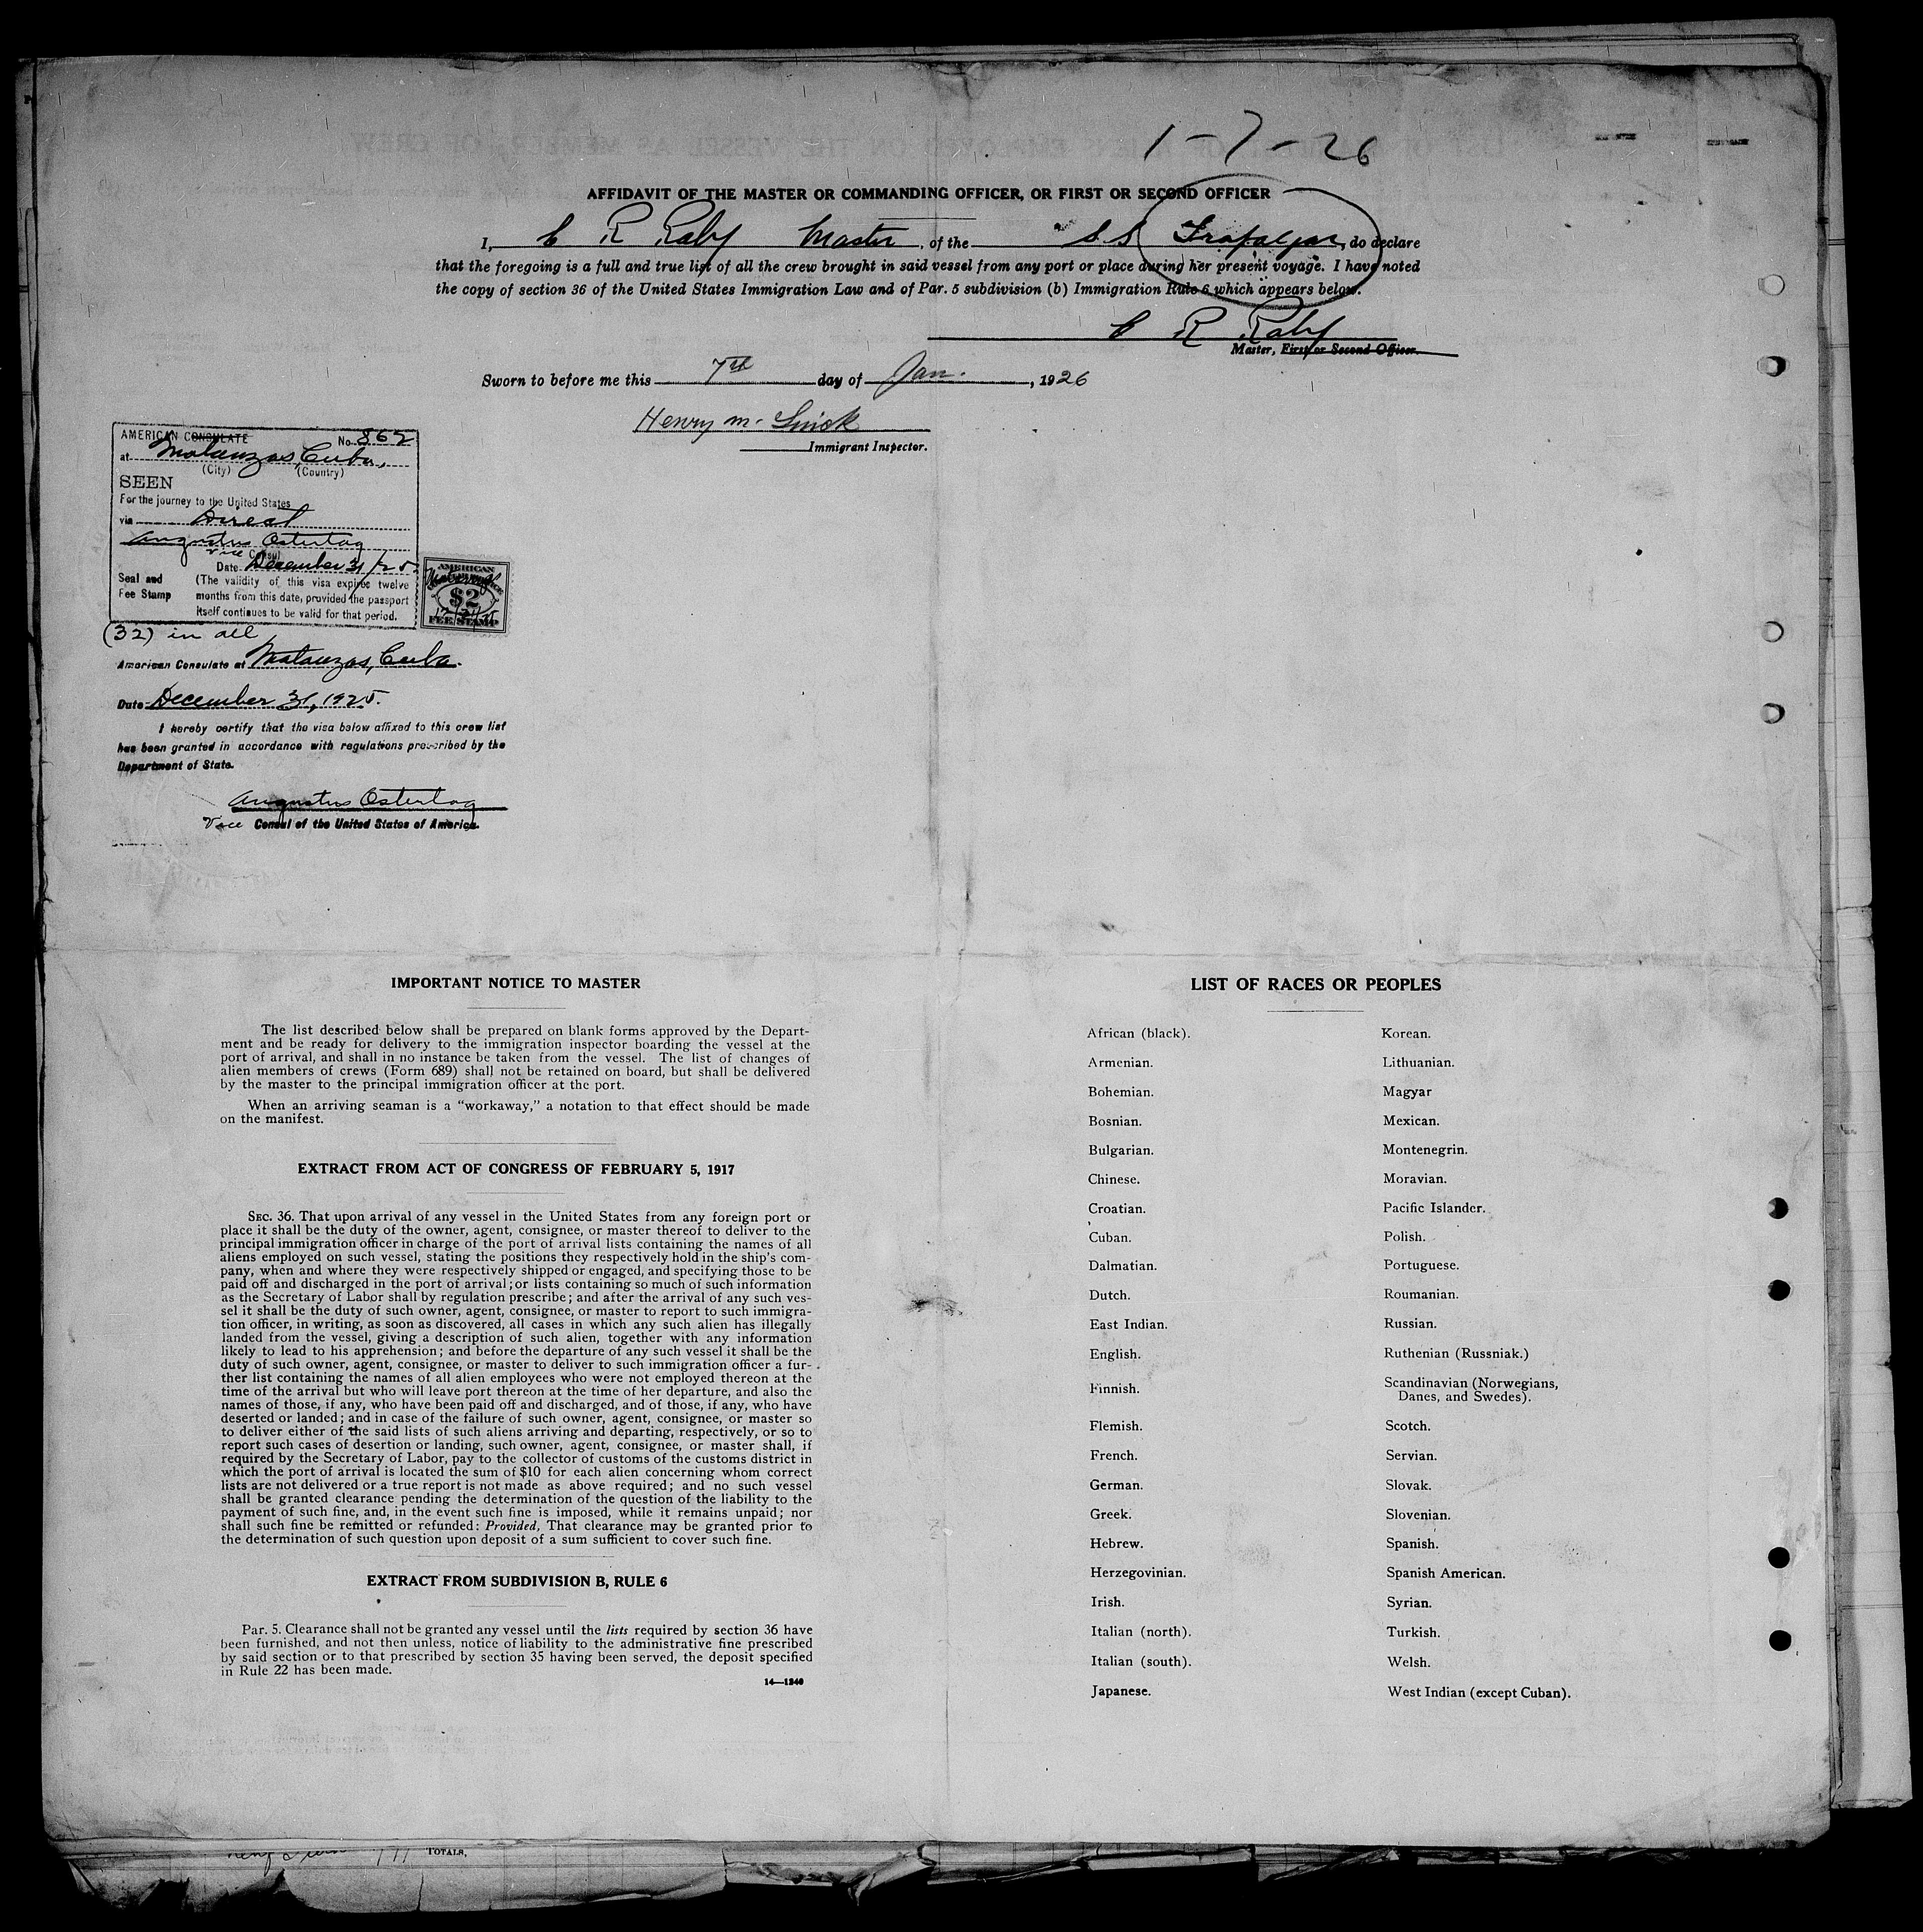 1-7-26
AFFIDAVIT OF THE MASTER OR COMMANDING OFFICER, OR FIRST OR SECOND OFFICER
I, C R Raby Master, of the S.S. Trafalgar, do declare
that the foregoing is a full and true list of all the crew brought in said vessel from any port or place during her present voyage. I have noted
the copy of section 36 of the United States Immigration Law and of Par. 5 subdivision (b) Immigration Rule 6 which appears below.
C R Raby
Master, First or Second Officer.
Sworn to before me this 7th day of Jan., 1926
Henry M.
Immigrant Inspector.
AMERICAN CONSULATE
No. 862
at Matanzas, Cuba.
(City) (Country)
SEEN
For the journey to the United States
via Direct
Augustus Ostertag
Vice Consul
Date December 31/25.
Seal and (The validity of this visa expires twelve
Fee Stamp months from this date, provided the passport
itself continues to be valid for that period.
AMERICAN
$2
FEE STAMP
(32) in all
American Consulate at Matanzas, Cuba.
Date December 31, 1925.
I hereby certify that the visa below affixed to this crew list
has been granted in accordance with regulations prescribed by the
Department of State.
Augustus Ostertag
Vice Consul of the United States of America.
IMPORTANT NOTICE TO MASTER
The list described below shall be prepared on blank forms approved by the Depart-
ment and be ready for delivery to the immigration inspector boarding the vessel at the
port of arrival, and shall in no instance be taken from the vessel. The list of changes of
alien members of crews (Form 689) shall not be retained on board, but shall be delivered
by the master to the principal immigration officer at the port.
When an arriving seaman is a “workaway,” a notation to that effect should be made
on the manifest.
EXTRACT FROM ACT OF CONGRESS OF FEBRUARY 5, 1917
SEC. 36. That upon arrival of any vessel in the United States from any foreign port or
place it shall be the duty of the owner, agent, consignee, or master thereof to deliver to the
principal immigration officer in charge of the port of arrival lists containing the names of all
aliens employed on such vessel, stating the positions they respectively hold in the ship's com-
pany, when and where they were respectively shipped or engaged, and specifying those to be
paid off and discharged in the port of arrival; or lists containing so much of such information
as the Secretary of Labor shall by regulation prescribe; and after the arrival of any such ves-
sel it shall be the duty of such owner, agent, consignee, or master to report to such immigra-
tion officer, in writing, as soon as discovered, all cases in which any such alien has illegally
landed from the vessel, giving a description of such alien, together with any information
likely to lead to his apprehension; and before the departure of any such vessel it shall be the
duty of such owner, agent, consignee, or master to deliver to such immigration officer a fur-
ther list containing the names of all alien employees who were not employed thereon at the
time of the arrival but who will leave port thereon at the time of her departure, and also the
names of those, if any, who have been paid off and discharged, and of those, if any, who have
deserted or landed; and in case of the failure of such owner, agent, consignee, or master so
to deliver either of the said lists of such aliens arriving and departing, respectively, or so to
report such cases of desertion or landing, such owner, agent, consignee, or master shall, if
required by the Secretary of Labor, pay to the collector of customs of the customs district in
which the port of arrival is located the sum of $10 for each alien concerning whom correct
lists are not delivered or a true report is not made as above required; and no such vessel
shall be granted clearance pending the determination of the question of the liability to the
payment of such fine, and, in the event such fine is imposed, while it remains unpaid; nor
shall such fine be remitted or refunded: Provided, That clearance may be granted prior to
the determination of such question upon deposit of a sum sufficient to cover such fine.
EXTRACT FROM SUBDIVISION B, RULE 6
Par. 5. Clearance shall not be granted any vessel until the lists required by section 36 have
been furnished, and not then unless, notice of liability to the administrative fine prescribed
by said section or to that prescribed by section 35 having been served, the deposit specified
in Rule 22 has been made.
14—1240
LIST OF RACES OR PEOPLES
African (black).
Armenian.
Bohemian.
Bosnian.
Bulgarian.
Chinese.
Croatian.
Cuban.
Dalmatian.
Dutch.
East Indian.
English.
Finnish.
Flemish.
French.
German.
Greek.
Hebrew.
Herzegovinian.
Irish.
Italian (north).
Italian (south).
Japanese.
Korean.
Lithuanian.
Magyar
Mexican.
Montenegrin.
Moravian.
Pacific Islander.
Polish.
Portuguese.
Roumanian.
Russian.
Ruthenian (Russniak.)
Scandinavian (Norwegians,
Danes, and Swedes).
Scotch.
Servian.
Slovak.
Slovenian.
Spanish.
Spanish American.
Syrian.
Turkish.
Welsh.
West Indian (except Cuban).
TOTALS,